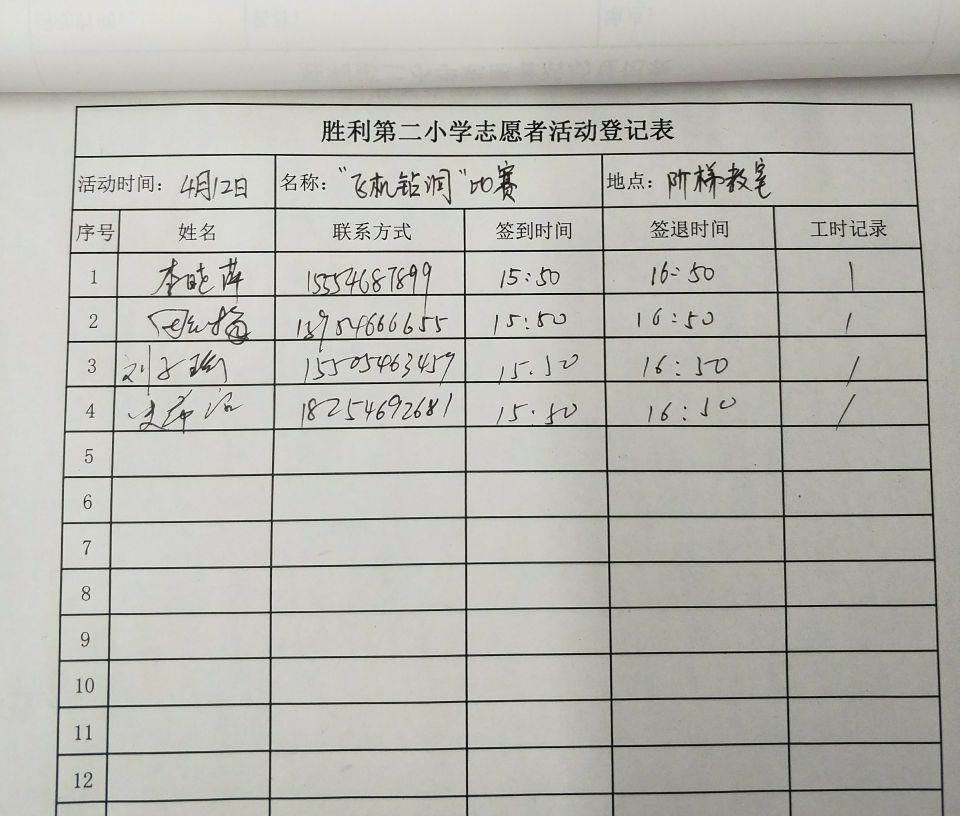 胜利第二小学志愿者活动登记表
活动时间：4月12日 名称："飞机钻洞"比赛 地点：阶梯教室
序号 姓名 联系方式 签到时间 签退时间 工时记录
1 李晓萍 15554687899 15:50 16:50 1
2 13954666655 15:50 16:50 1
3 刘子瑜 15505463459 15:50 16:50 1
4 18254692681 15:50 16:50 1
5
6
7
8
9
10
11
12